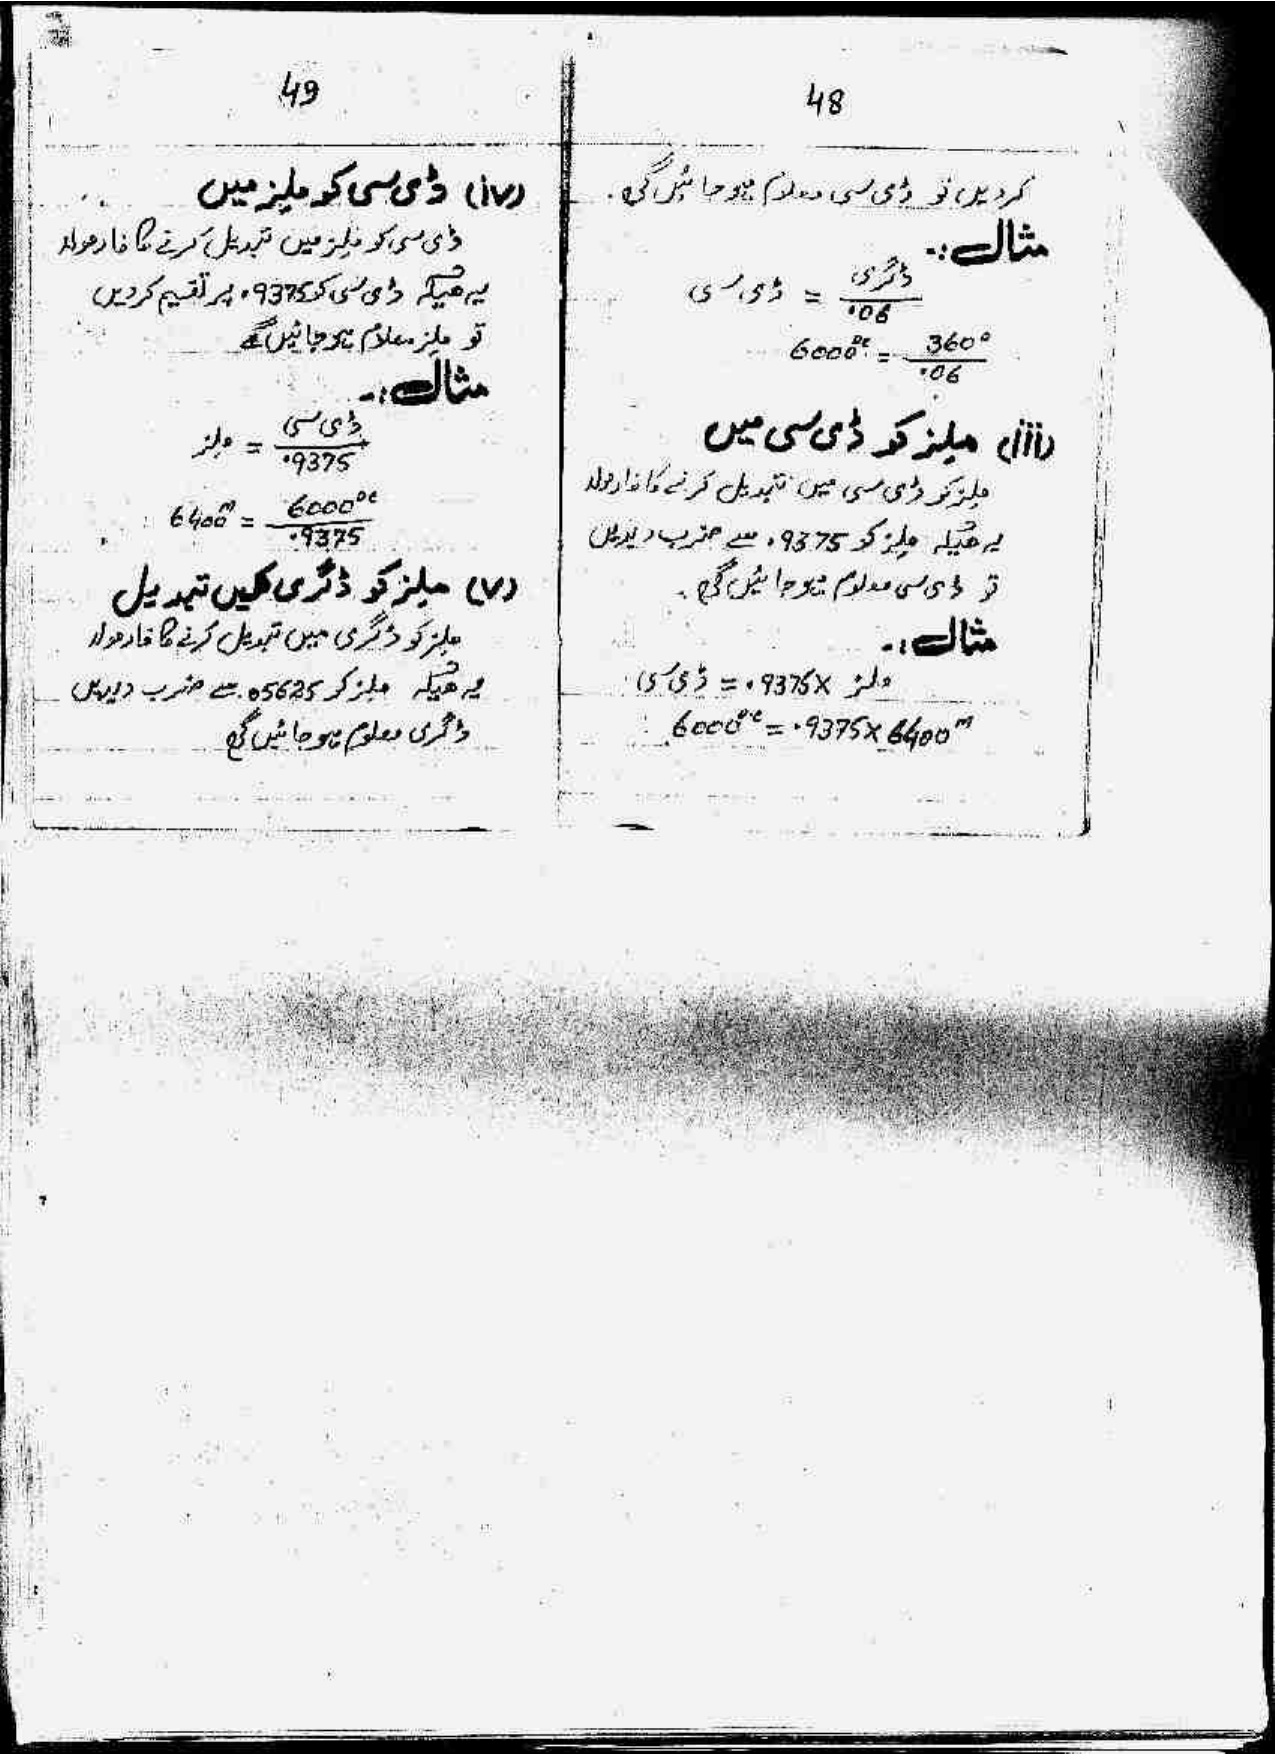 48
کردیں تو ڈی سی معلوم ہوجائیں گی۔
مثال:-
ڈگری / .06 = ڈی سی
360° / .06 = 6000°ᶜ
(iii) ملیز کو ڈی سی میں
ملیز کو ڈی سی میں تبدیل کرنے کا فارمولہ
یہ ھیکہ ملیز کو .9375 سے ضرب دیدیں
تو ڈی سی معلوم ہوجائیں گی۔
مثال:-
ملز x .9375 = ڈی سی
6000°ᶜ = .9375 x 6400ᵐ
49
(iv) ڈی سی کو ملیز میں
ڈی سی کو ملیز میں تبدیل کرنے کا فارمولہ
یہ ھیکہ ڈی سی کو .9375 پر تقسیم کردیں
تو ملیز معلوم ہوجائیں گے
مثال:-
ڈی سی / .9375 = ملیز
6000°ᶜ / .9375 = 6400ᵐ
(v) ملیز کو ڈگری میں تبدیل
ملیز کو ڈگری میں تبدیل کرنے کا فارمولہ
یہ ھیکہ ملیز کو .05625 سے ضرب دیدیں
ڈگری معلوم ہوجائیں گی